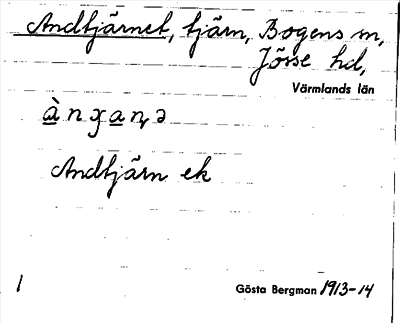 Andtjärnet, tjärn, Bogens sn,
Jösse hd,
Värmlands län
Andtjärn ek
1 Gösta Bergman 1913-14